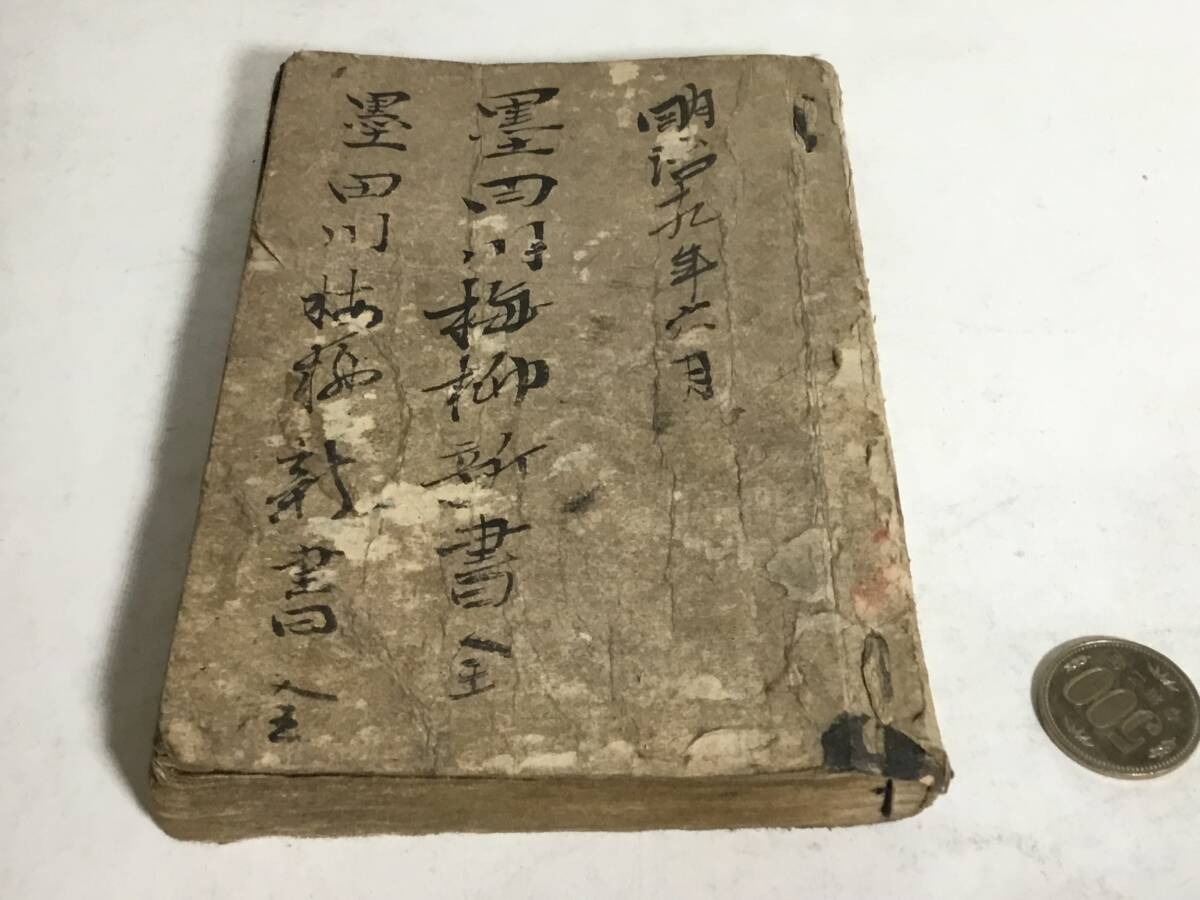 明治十九年六月
墨田川梅柳新書全
墨田川梅柳新書全
500